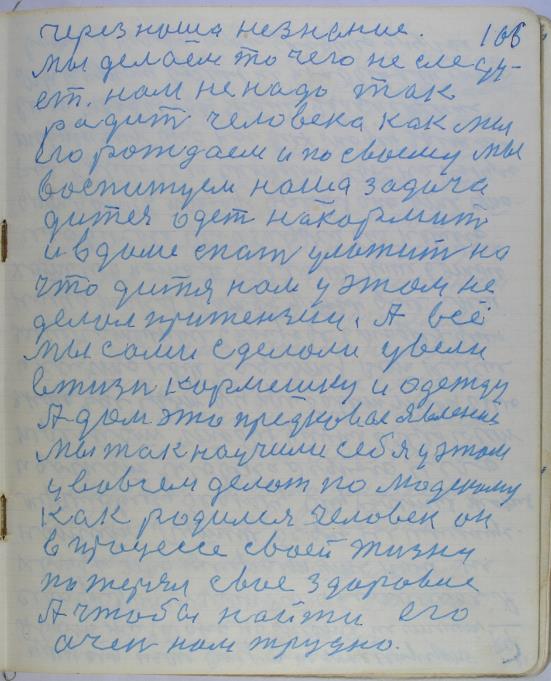 через наша незнание. 106
мы делаем то чего не следу-
ет. нам не надо так
радит человека как мы
его рождаем и по своему мы
воспитуем наша задача
дитея одет накормит
и в доме спат уложит на
что дитя нам у этом не
делал притензии. А всё
мы сами сделали увели
в жизн кормешку и одежду
А дом это предковае явление
мы так научили себя у этом
у вовсем делат по модному
Как родился человек он
в процессе своей жизни
потерял свое здоровие
А чтобы найти его
очен нам трудно.